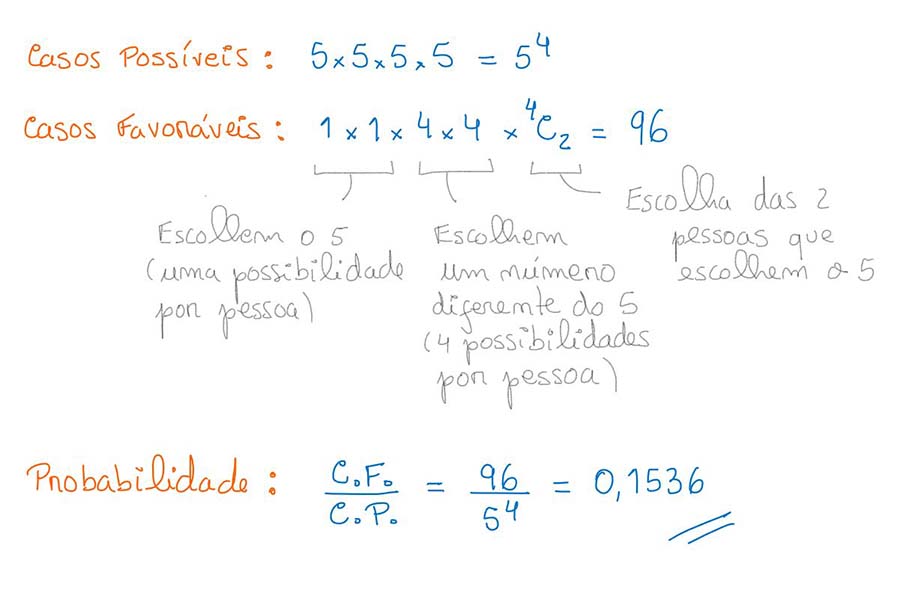 Casos Possíveis: 5×5×5×5 = 5⁴
Casos Favoráveis: 1×1×4×4 × ⁴C₂ = 96
Escolhem o 5
(uma possibilidade
por pessoa)
Escolhem
um número
diferente do 5
(4 possibilidades
por pessoa)
Escolha das 2
pessoas que
escolhem o 5
Probabilidade: C.F./C.P. = 96/5⁴ = 0,1536